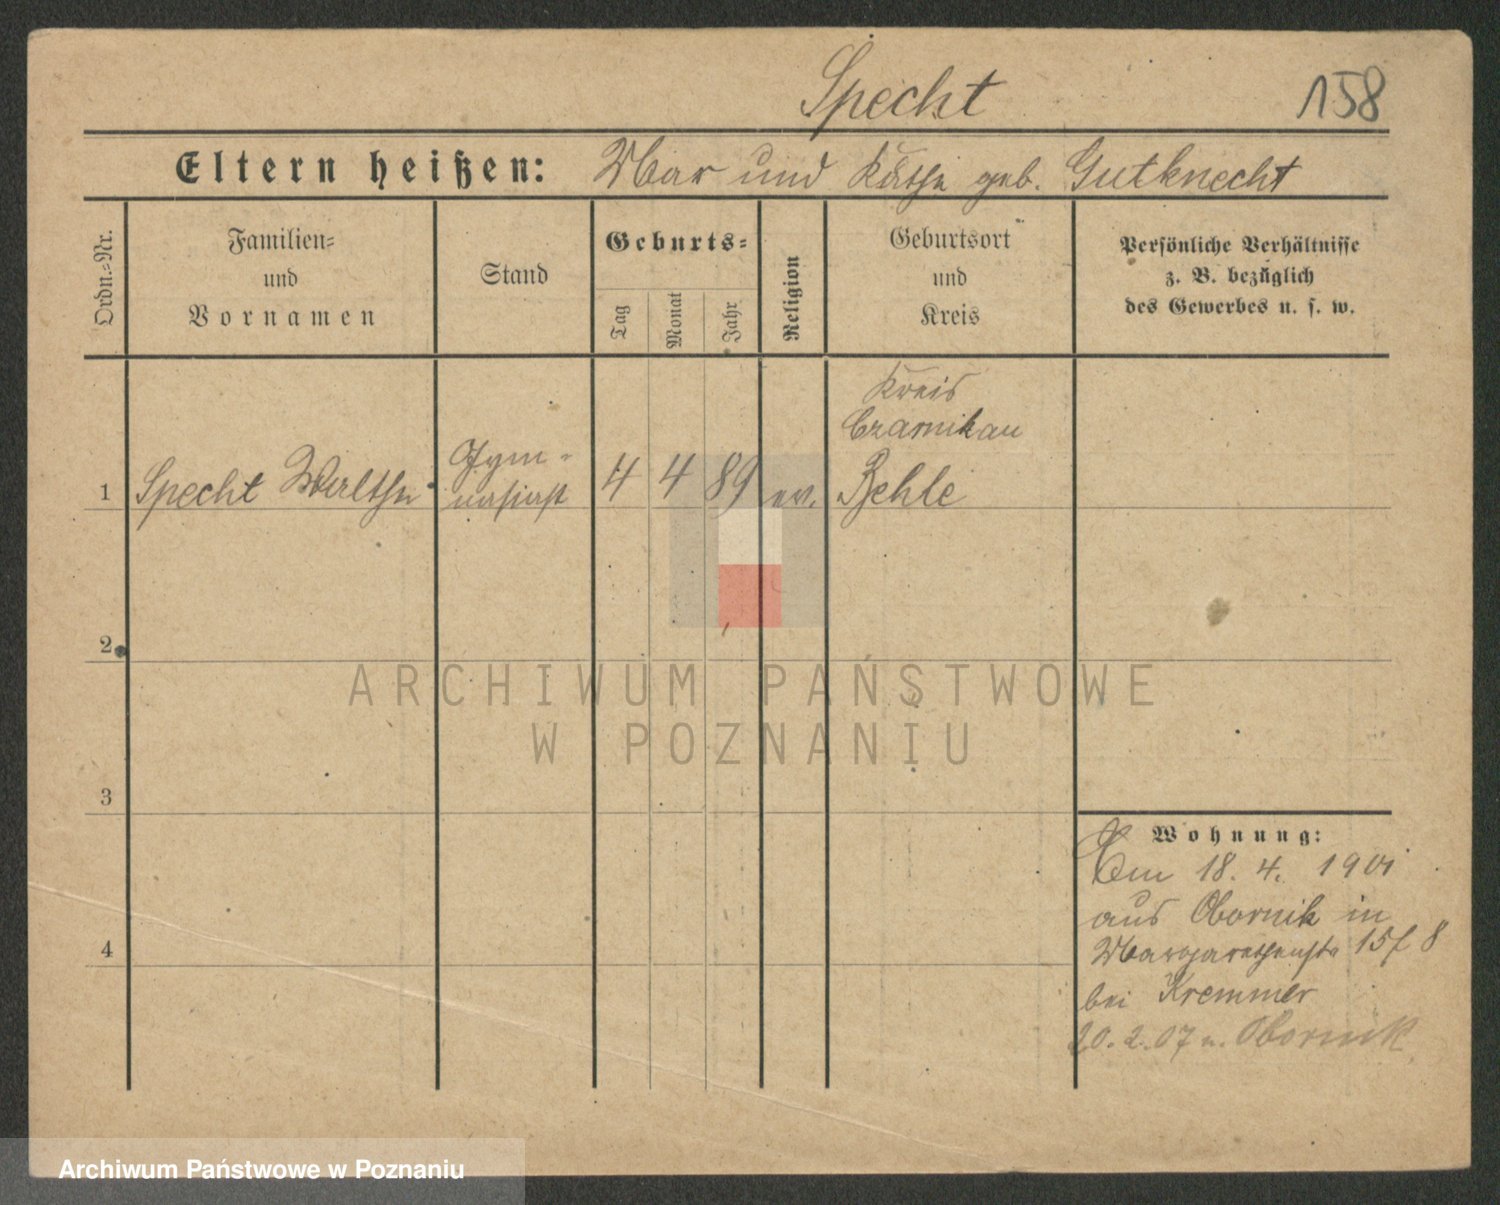 Specht
158
Eltern heißen: Max und Käthe geb. Gutknecht
Ordn.=Nr.
Familien=
und
Vornamen
Stand
Geburts=
Tag
Monat
Jahr
Religion
Geburtsort
und
Kreis
Persönliche Verhältnisse
z. B. bezüglich
des Gewerbes u. s. w.
Kreis
Czarnikau
1 Specht Walther
Gym-
nasiast
4 4 89 ev. Behle
2
3
4
Wohnung:
Am 18. 4. 1901
aus Obornik in
Margarethenstr 15
bei Kremmer
20. 2. 07 n. Obornik
ARCHIWUM PAŃSTWOWE
W POZNANIU
Archiwum Państwowe w Poznaniu